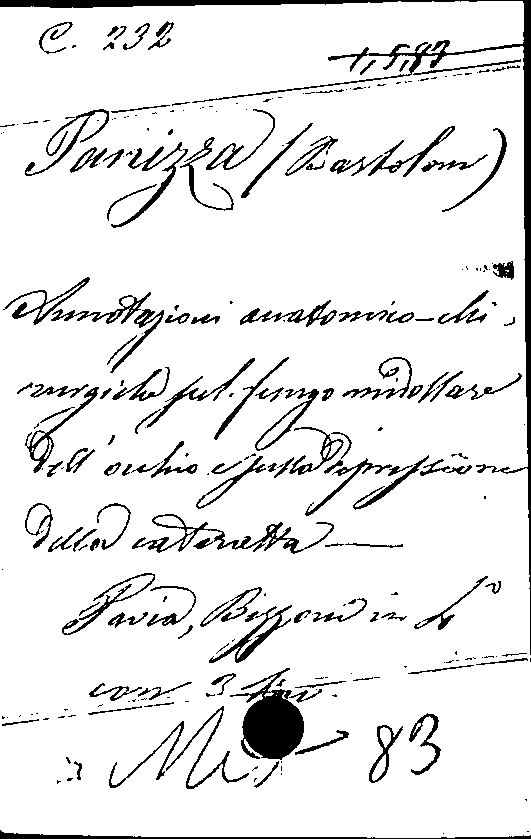 C. 232
1,5,83
Panizza (Bartolom)
Annotazioni anatomico-chi-
rurgiche sul fungo midollare
dell'occhio e sulla depressione
della cateratta —
Pavia, Bizzoni in 4°
con 3
83